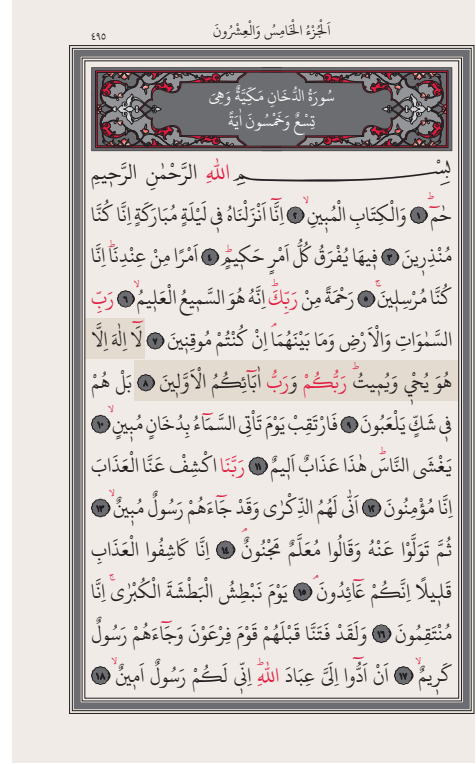 اَلْجُزْءُ الْخَامِسُ وَالْعِشْرُونَ
٤٩٥
سُورَةُ الدُّخَانِ مَكِّيَّةٌ وَهِيَ
تِسْعٌ وَخَمْسُونَ اٰيَةً
بِسْمِ اللّٰهِ الرَّحْمٰنِ الرَّحِيمِ
حٰمٓ ﴿١﴾ وَالْكِتَابِ الْمُبٖينِۙ ﴿٢﴾ اِنَّٓا اَنْزَلْنَاهُ فٖي لَيْلَةٍ مُبَارَكَةٍ اِنَّا كُنَّا
مُنْذِرٖينَ ﴿٣﴾ فٖيهَا يُفْرَقُ كُلُّ اَمْرٍ حَكٖيمٍۙ ﴿٤﴾ اَمْرًا مِنْ عِنْدِنَاۜ اِنَّا
كُنَّا مُرْسِلٖينَۚ ﴿٥﴾ رَحْمَةً مِنْ رَبِّكَۜ اِنَّهُ هُوَ السَّمٖيعُ الْعَلٖيمُۙ ﴿٦﴾ رَبِّ
السَّمٰوَاتِ وَالْاَرْضِ وَمَا بَيْنَهُمَاۢ اِنْ كُنْتُمْ مُوقِنٖينَ ﴿٧﴾ لَٓا اِلٰهَ اِلَّا
هُوَ يُحْيٖ وَيُمٖيتُۜ رَبُّكُمْ وَرَبُّ اٰبَٓائِكُمُ الْاَوَّلٖينَ ﴿٨﴾ بَلْ هُمْ
فٖي شَكٍّ يَلْعَبُونَ ﴿٩﴾ فَارْتَقِبْ يَوْمَ تَأْتِي السَّمَٓاءُ بِدُخَانٍ مُبٖينٍۙ ﴿١٠﴾
يَغْشَى النَّاسَۜ هٰذَا عَذَابٌ اَلٖيمٌ ﴿١١﴾ رَبَّنَا اكْشِفْ عَنَّا الْعَذَابَ
اِنَّا مُؤْمِنُونَ ﴿١٢﴾ اَنّٰى لَهُمُ الذِّكْرٰى وَقَدْ جَٓاءَهُمْ رَسُولٌ مُبٖينٌۙ ﴿١٣﴾
ثُمَّ تَوَلَّوْا عَنْهُ وَقَالُوا مُعَلَّمٌ مَجْنُونٌۢ ﴿١٤﴾ اِنَّا كَاشِفُوا الْعَذَابِ
قَلٖيلًا اِنَّكُمْ عَٓائِدُونَۢ ﴿١٥﴾ يَوْمَ نَبْطِشُ الْبَطْشَةَ الْكُبْرٰىۚ اِنَّا
مُنْتَقِمُونَ ﴿١٦﴾ وَلَقَدْ فَتَنَّا قَبْلَهُمْ قَوْمَ فِرْعَوْنَ وَجَٓاءَهُمْ رَسُولٌ
كَرٖيمٌۙ ﴿١٧﴾ اَنْ اَدُّٓوا اِلَيَّ عِبَادَ اللّٰهِۜ اِنّٖي لَكُمْ رَسُولٌ اَمٖينٌۙ ﴿١٨﴾